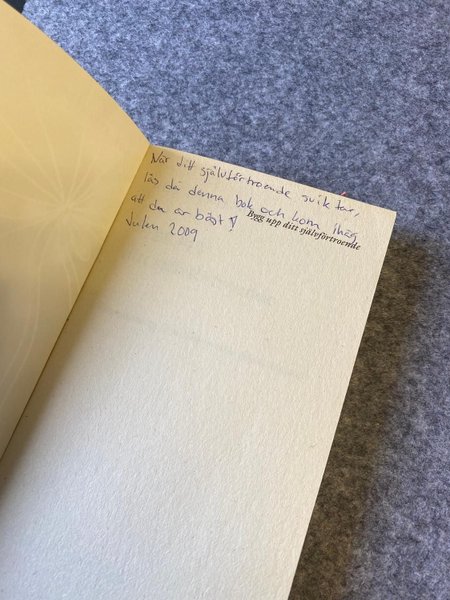 När ditt självförtroende sviktar,
läs då denna bok och kom ihåg
att du är bäst ♡
Julen 2009
Bygg upp ditt självförtroende